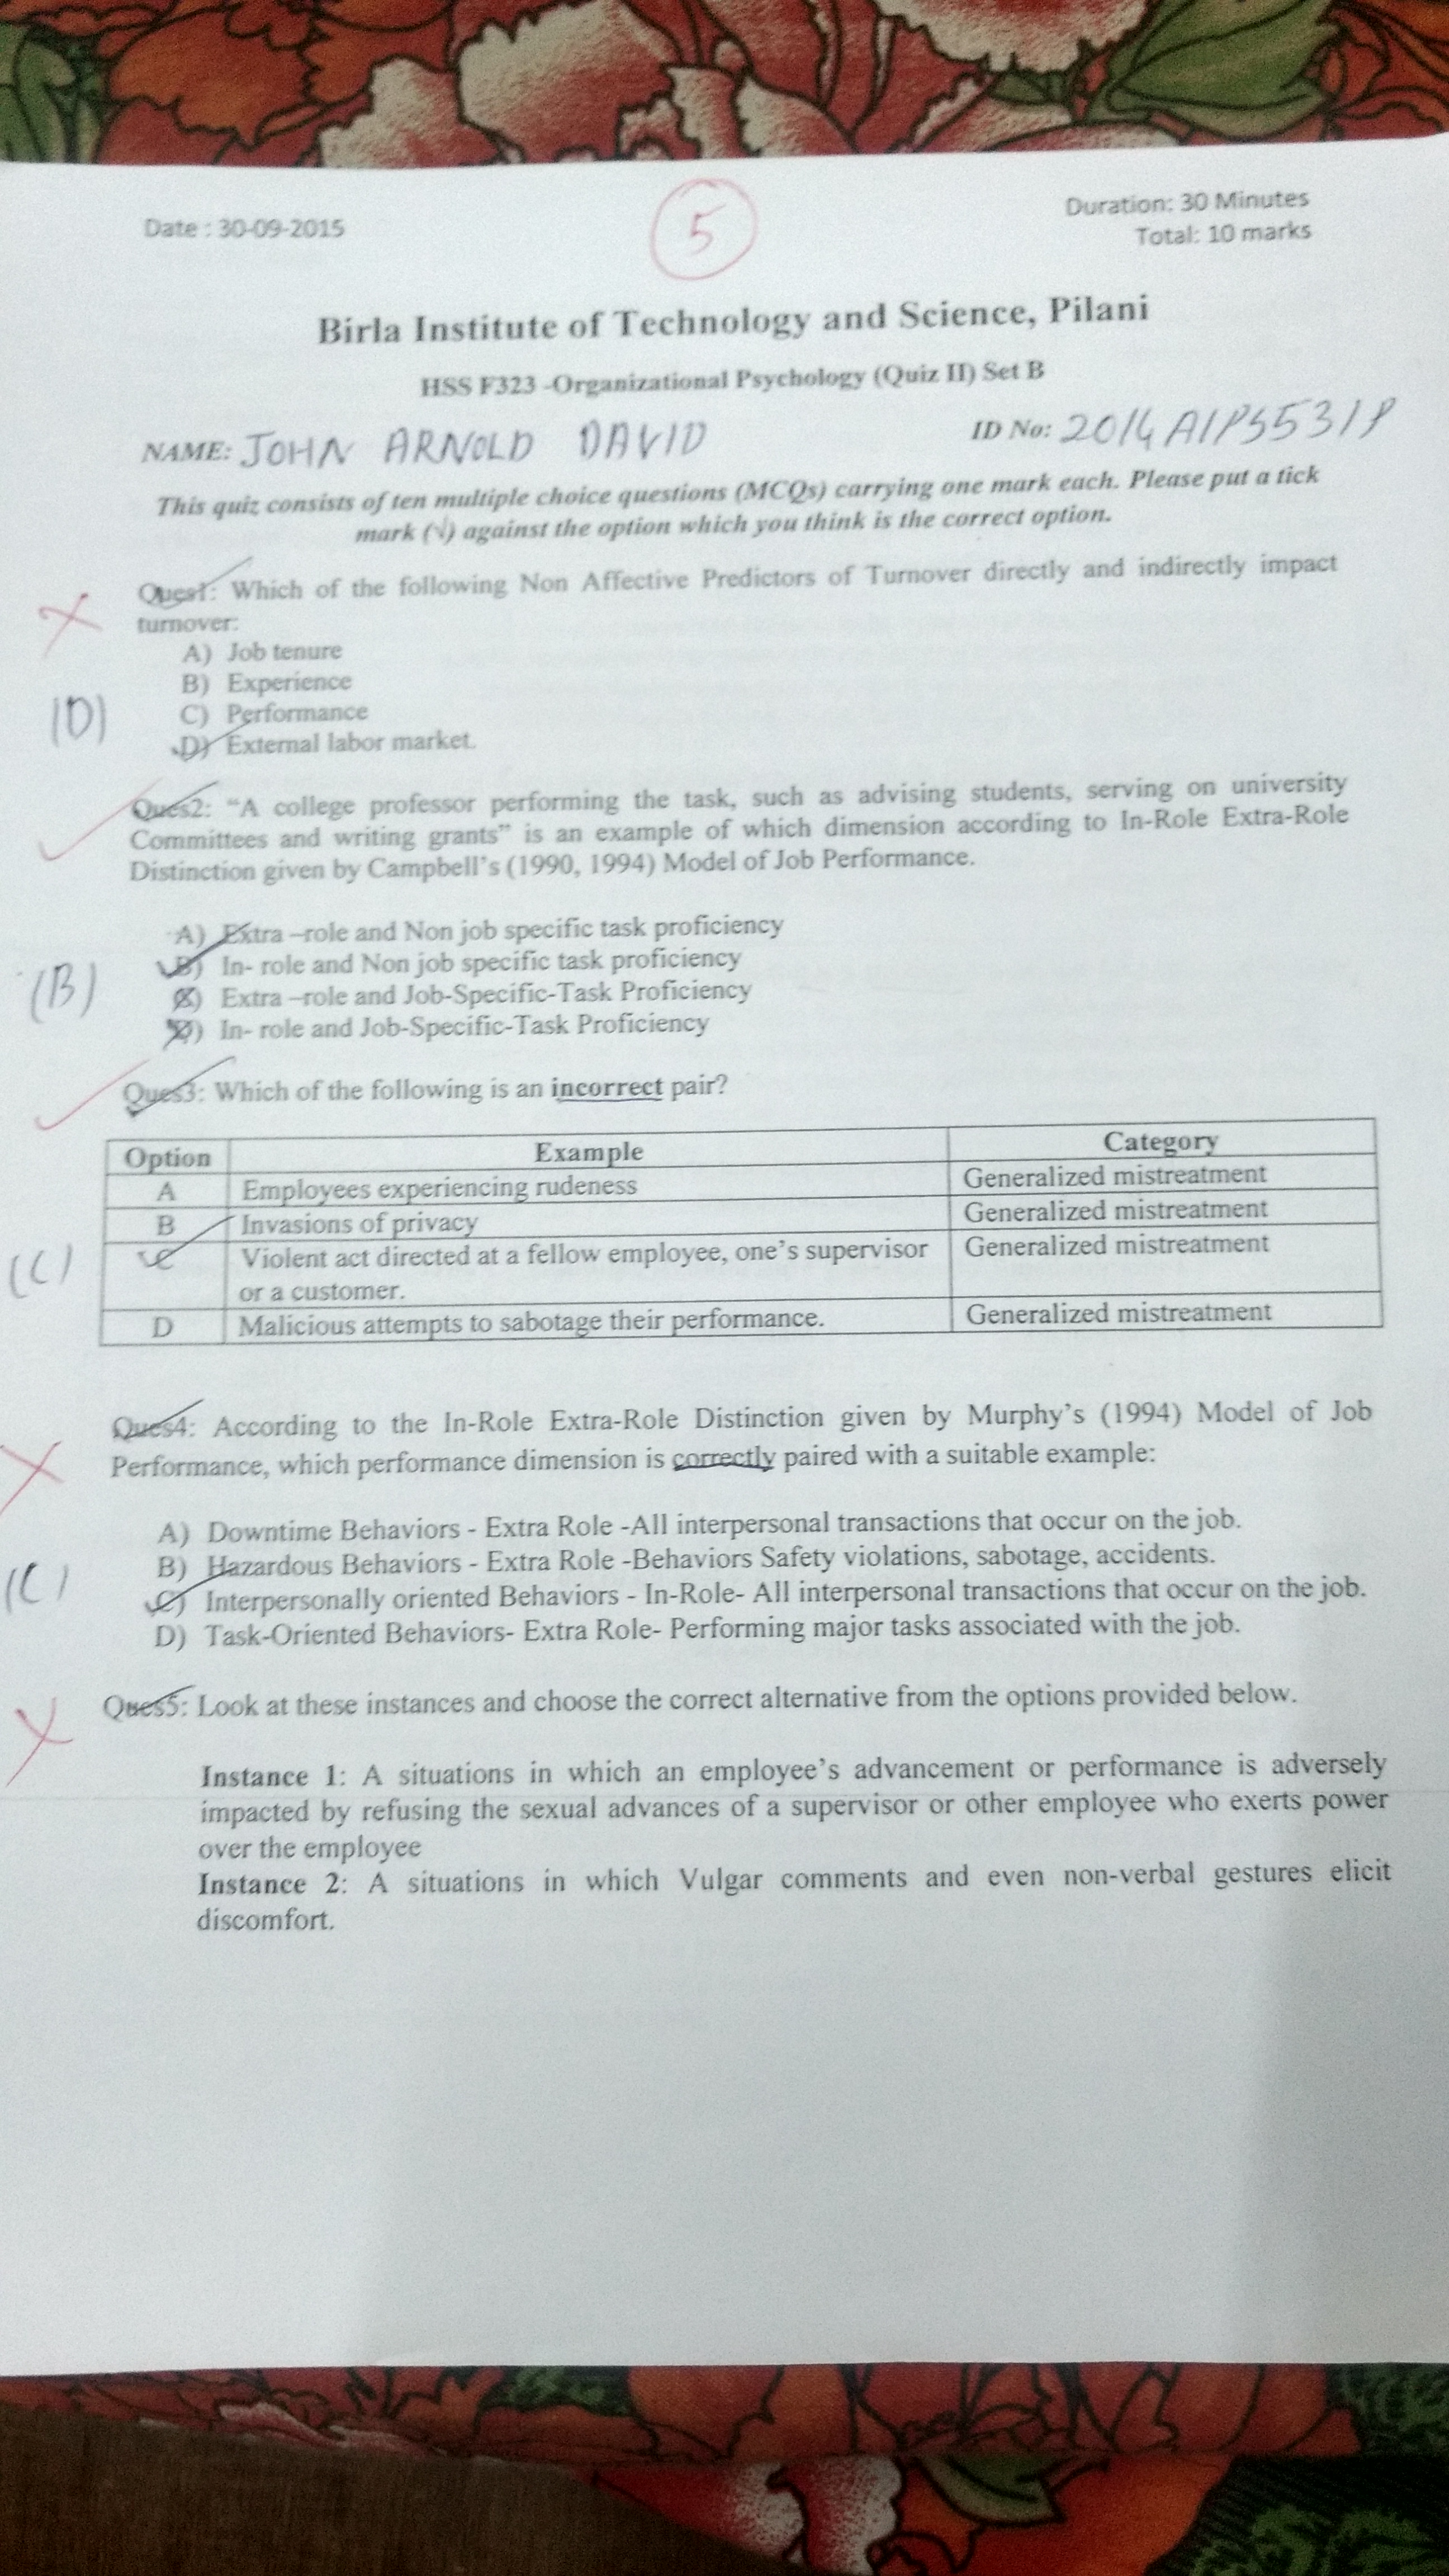 Date : 30-09-2015
5
Duration: 30 Minutes
Total: 10 marks
Birla Institute of Technology and Science, Pilani
HSS F323 -Organizational Psychology (Quiz II) Set B
NAME: JOHN ARNOLD DAVID
ID No: 2014A1PS531P
This quiz consists of ten multiple choice questions (MCQs) carrying one mark each. Please put a tick
mark (√) against the option which you think is the correct option.
Ques1: Which of the following Non Affective Predictors of Turnover directly and indirectly impact
turnover:
A) Job tenure
B) Experience
(D)
C) Performance
D) External labor market.
Ques2: “A college professor performing the task, such as advising students, serving on university
Committees and writing grants” is an example of which dimension according to In-Role Extra-Role
Distinction given by Campbell’s (1990, 1994) Model of Job Performance.
A) Extra –role and Non job specific task proficiency
B) In- role and Non job specific task proficiency
(B)
C) Extra –role and Job-Specific-Task Proficiency
D) In- role and Job-Specific-Task Proficiency
Ques3: Which of the following is an incorrect pair?
Option Example Category
A Employees experiencing rudeness Generalized mistreatment
B Invasions of privacy Generalized mistreatment
(C)
C Violent act directed at a fellow employee, one’s supervisor Generalized mistreatment
or a customer.
D Malicious attempts to sabotage their performance. Generalized mistreatment
Ques4: According to the In-Role Extra-Role Distinction given by Murphy’s (1994) Model of Job
Performance, which performance dimension is correctly paired with a suitable example:
A) Downtime Behaviors - Extra Role -All interpersonal transactions that occur on the job.
B) Hazardous Behaviors - Extra Role -Behaviors Safety violations, sabotage, accidents.
(C)
C) Interpersonally oriented Behaviors - In-Role- All interpersonal transactions that occur on the job.
D) Task-Oriented Behaviors- Extra Role- Performing major tasks associated with the job.
Ques5: Look at these instances and choose the correct alternative from the options provided below.
Instance 1: A situations in which an employee’s advancement or performance is adversely
impacted by refusing the sexual advances of a supervisor or other employee who exerts power
over the employee
Instance 2: A situations in which Vulgar comments and even non-verbal gestures elicit
discomfort.